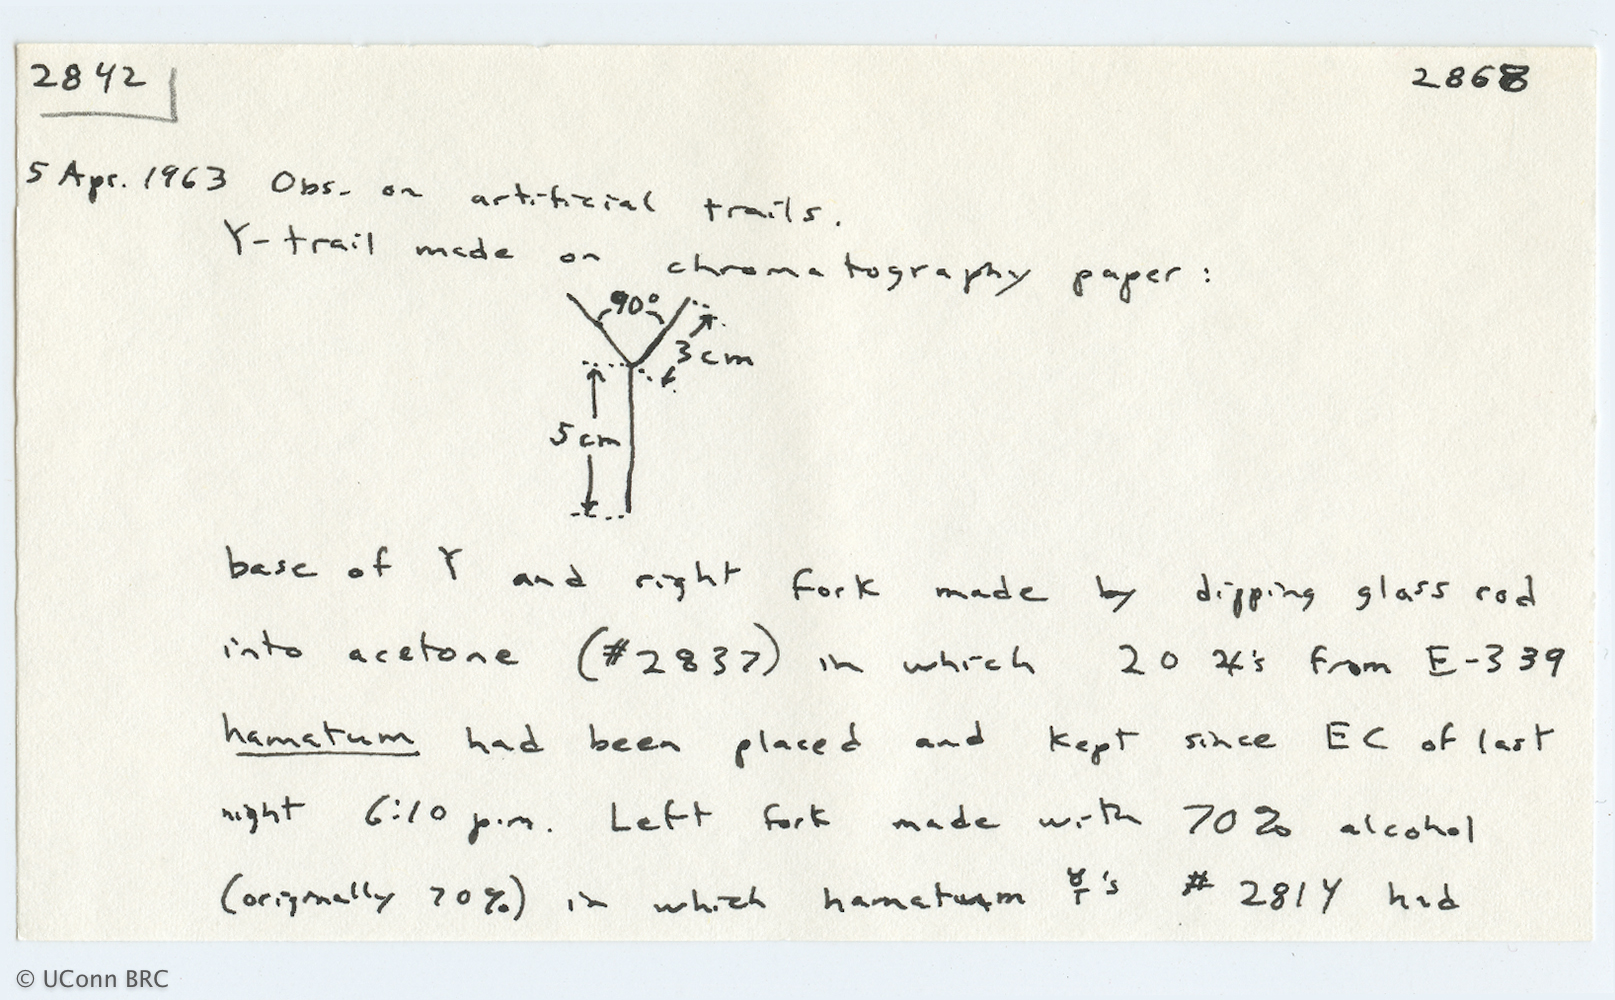 2842
2868
5 Apr. 1963 Obs. on artificial trails.
Y-trail made on chromatography paper:
90°
3 cm
5 cm
base of Y and right fork made by dipping glass rod
into acetone (#2837) in which 20 ☿'s from E-339
hamatum had been placed and kept since EC of last
night 6:10 p.m. Left fork made with 70% alcohol
(originally 70%) in which hamatum ☿'s # 2814 had
© UConn BRC